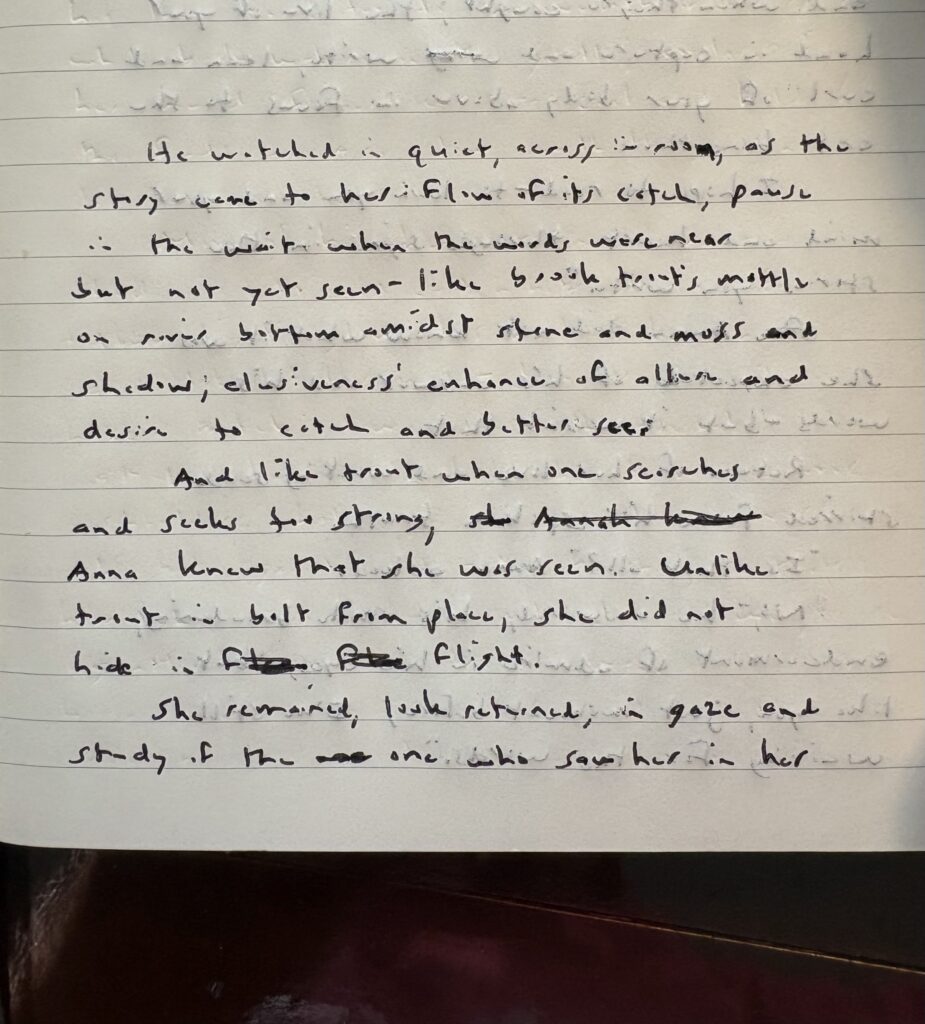 He watched in quiet, across in room, as the
story came to her: flow of its catch, pause
in the wait when the words were near
but not yet seen - like brook trout's mottle
on river bottom amidst stone and moss and
shadow; elusiveness' enhance of allure and
desire to catch and better see.
And like trout when one searches
and seeks too strong,
Anna knew that she was seen. Unlike
trout in bolt from place, she did not
hide in flight.
She remained, look returned, in gaze and
study of the one who saw her in her